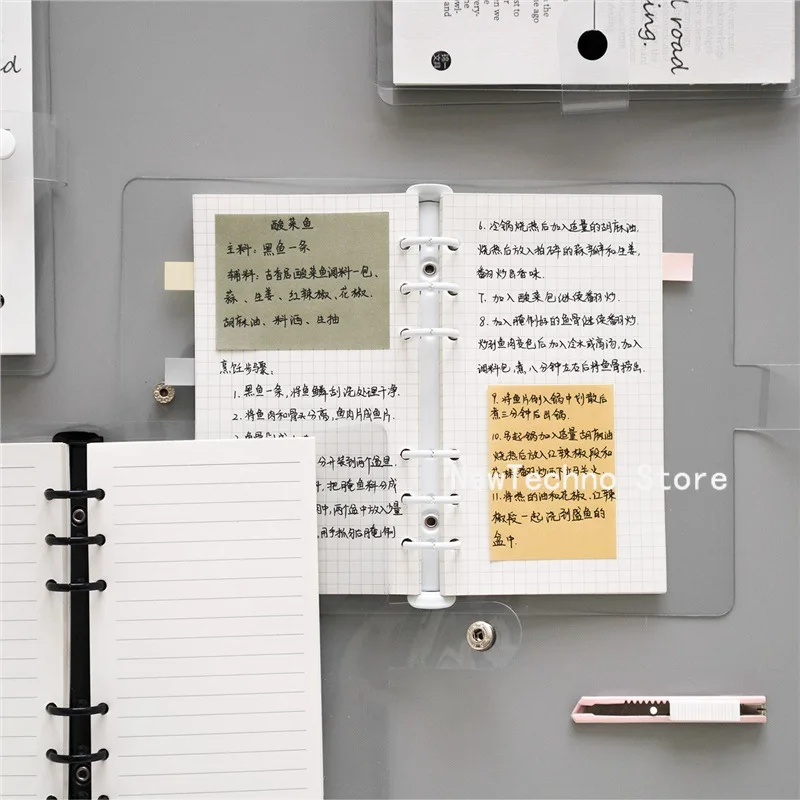 d
-er-
every-
and
owl-
st to
en we
ne ago
l road
ing.
统一
文具
酸菜鱼
主料：黑鱼一条
辅料：吉香居酸菜鱼调料一包、
蒜、生姜、红辣椒、花椒、
胡麻油、料酒、生抽
烹饪步骤：
1. 黑鱼一条，将鱼鳞刮洗处理干净.
2. 将鱼肉和骨头分离，鱼肉片成鱼片.
分开装到两个盘里
，把腌鱼料分成
中，两个盆中放入少量
用手抓匀后腌制
6. 冷锅烧热后加入适量的胡麻油，
烧热后放入拍碎的蒜瓣和生姜，
翻炒出香味.
7. 加入酸菜包继续翻炒.
8. 加入腌制好的鱼骨继续翻炒.
炒到鱼肉变色后加入冷水或高汤，加入
调料包，煮八分钟左右后将鱼骨捞出.
9. 将鱼片倒入锅中划散后
煮三分钟后出锅.
10. 另起锅加入适量胡麻油
烧热后放入红辣椒段和
花椒翻炒两下关火
11. 将热的油和花椒、红辣
椒段一起浇到盛鱼的
盆中.
NewTechno Store